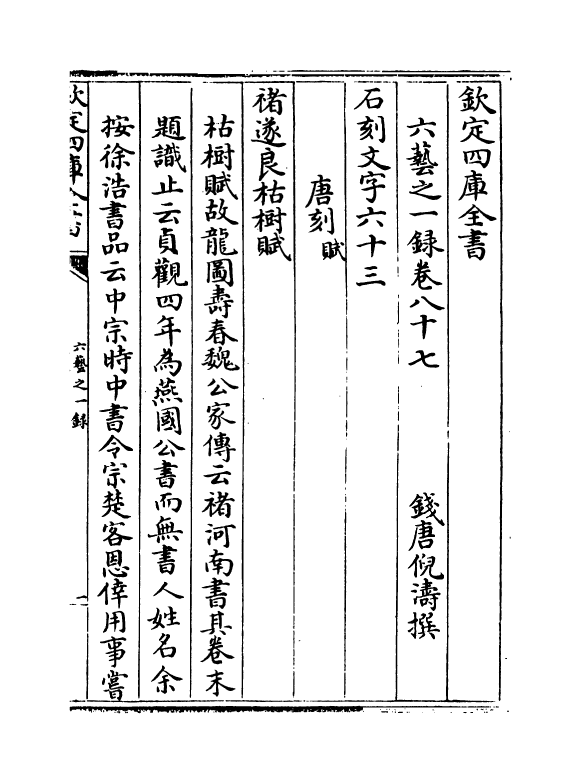 欽定四庫全書
六藝之一録卷八十七　錢唐倪濤撰
石刻文字六十三
唐刻賦
褚遂良枯樹賦
枯樹賦故龍圖壽春魏公家傳云褚河南書其卷末
題識止云貞觀四年為燕國公書而無書人姓名余
按徐浩書品云中宗時中書令宗楚客恩倖用事嘗
欽定四庫全書
六藝之一録
一